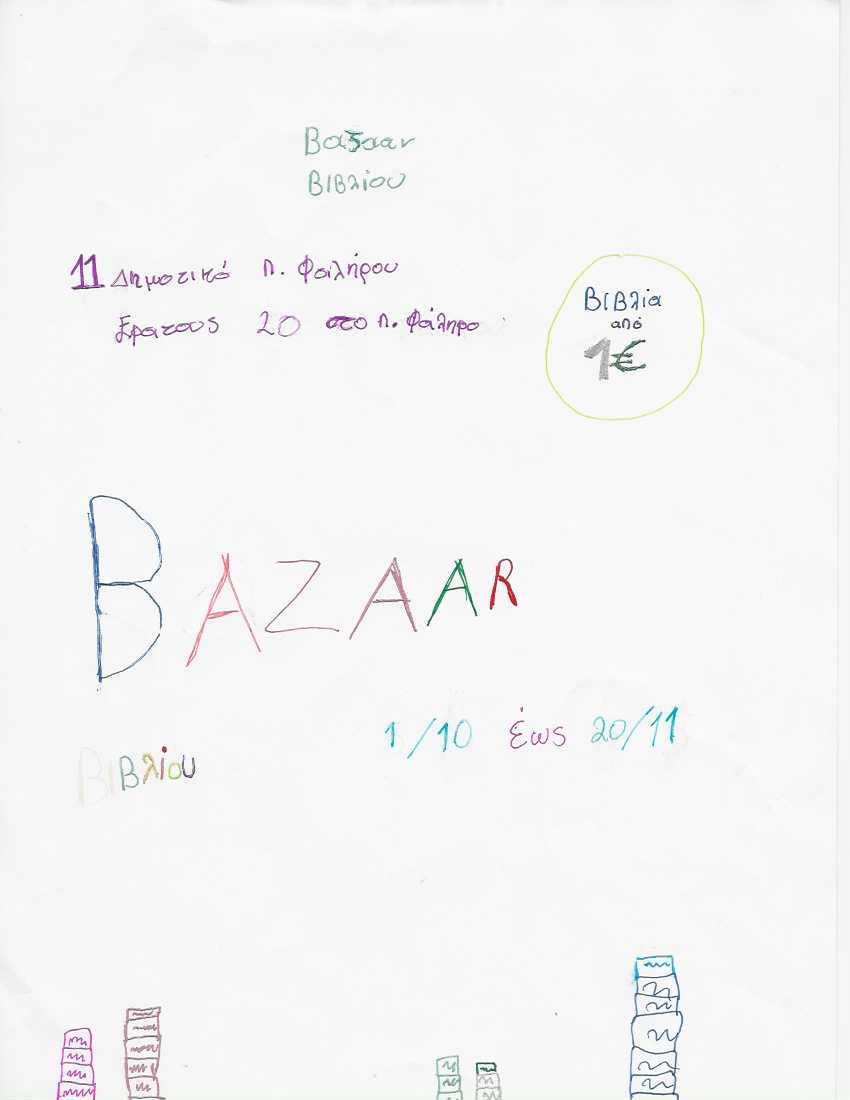 Βαζααν
Βιβλίου
11 Δημοτικό Π. Φαιλήρου
Ερατους 20 στο Π. Φάληρο
Βιβλία
από
1€
BAZAAR
1/10 έως 20/11
Βιβλίου